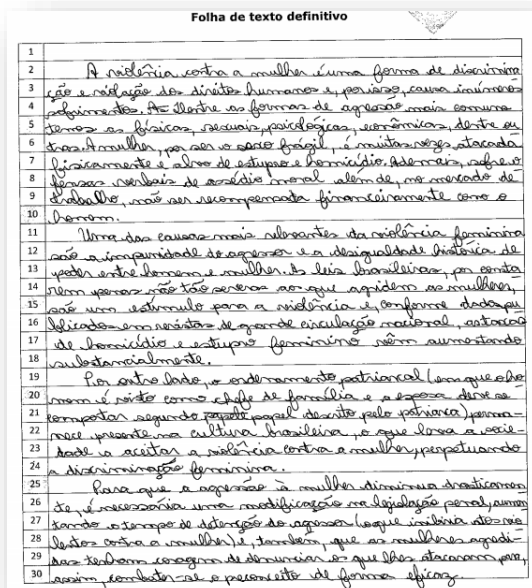 Folha de texto definitivo
1
2 A violência contra a mulher é uma forma de discrimina
3 ção e violação dos direitos humanos e, por isso, causa inúmeros
4 sofrimentos. Dentre as formas de agressão mais comuns
5 temos as físicas, sexuais, psicológicas, econômicas, dentre ou
6 tras. A mulher, por ser o sexo frágil, é muitas vezes atacada
7 fisicamente e alvo de estupro e homicídio. Ademais, sofre o
8 fensas verbais de assédio moral além de, no mercado de
9 trabalho, não ser recompensada financeiramente como o
10 homem.
11 Uma das causas mais relevantes da violência feminina
12 são a impunidade do agressor e a desigualdade histórica de
13 poder entre homem e mulher. As leis brasileiras, por conta
14 rem penas não tão severas aos que agridem as mulheres,
15 são um estímulo para a violência e, conforme dados pu
16 blicados em revistas de grande circulação nacional, as taxas
17 de homicídio e estupro feminino vêm aumentando
18 substancialmente.
19 Por outro lado, o ordenamento patriarcal (em que o ho
20 mem é visto como chefe de família e a esposa deve se
21 comportar segundo papel descrito pelo patriarca) perma-
22 nece presente na cultura brasileira, o que leva a socie-
23 dade a aceitar a violência contra a mulher, perpetuando
24 a discriminação feminina.
25 Para que a agressão à mulher diminua drasticamen
26 te, é necessária uma modificação na legislação penal, aumen
27 tando o tempo de detenção do agressor (o que inibiria atos vio
28 lentos contra a mulher) e, também, que as mulheres agredi
29 das tenham coragem de denunciar os que lhes atacaram para,
30 assim, combater-se o preconceito de forma eficaz.